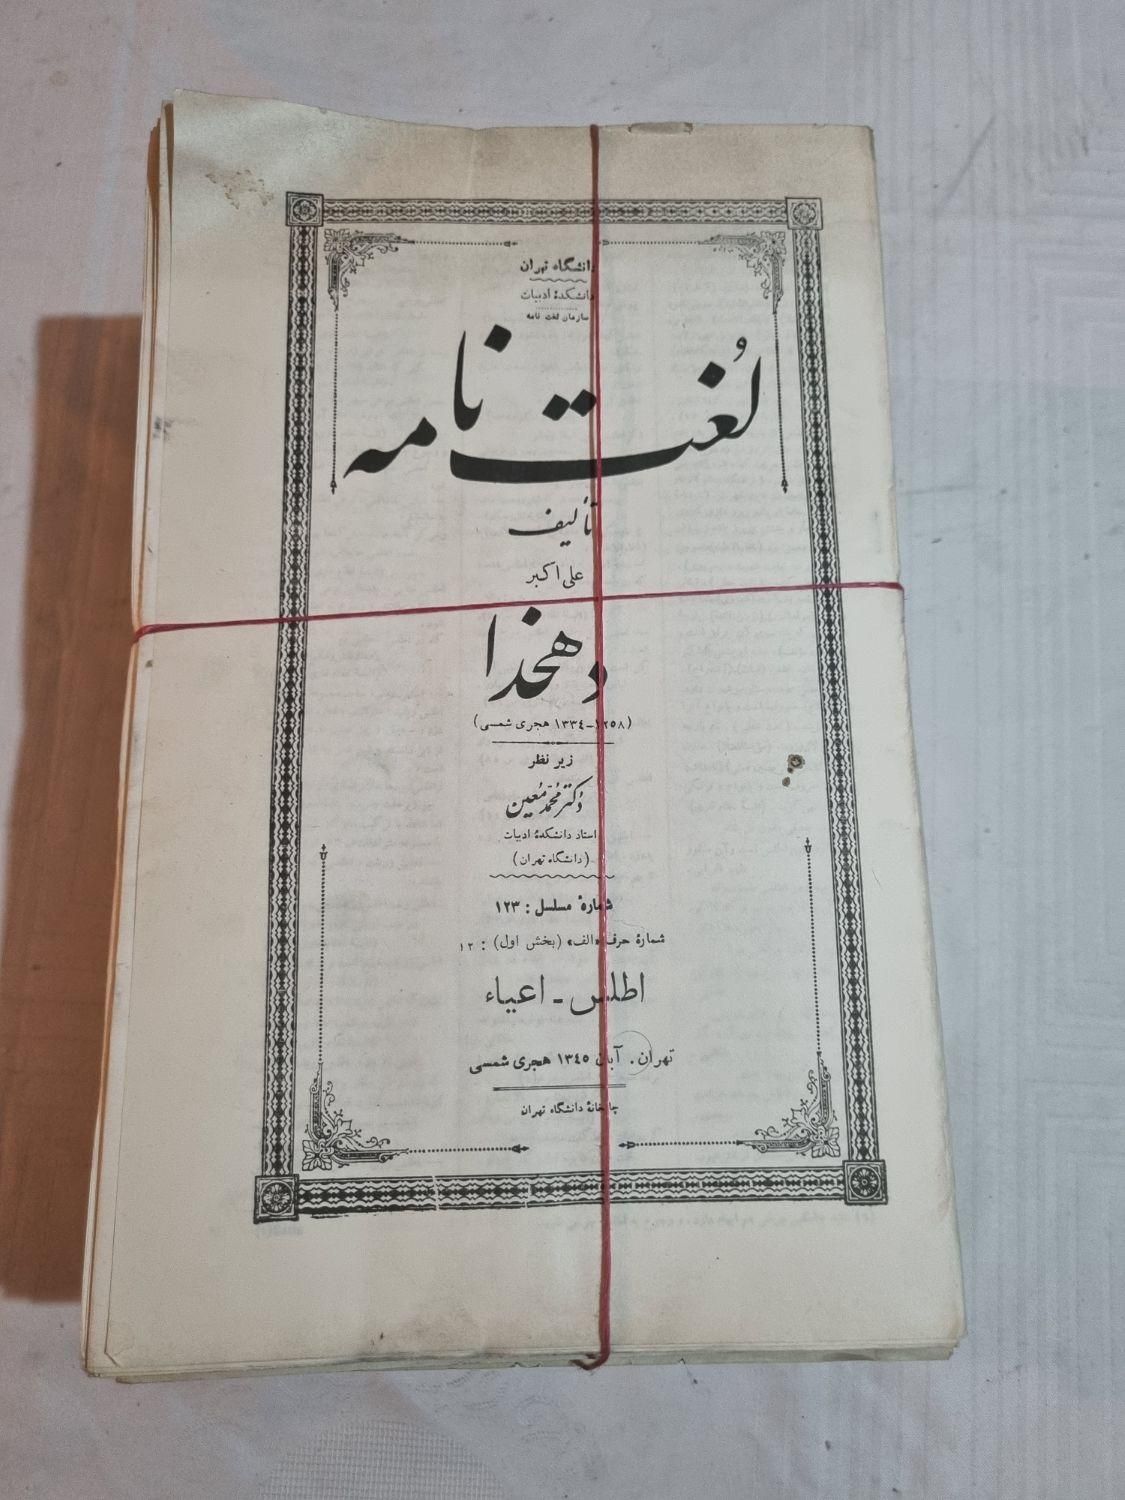 دانشگاه تهران
دانشکدهٔ ادبیات
سازمان لغت نامه
لُغت نامه
تألیف
علی اکبر
دهخدا
(۱۲۵۸-۱۳۳۴ هجری شمسی)
زیر نظر
دکتر محمّد مُعین
استاد دانشکدهٔ ادبیات
(دانشگاه تهران)
شمارهٔ مسلسل : ۱۲۳
شمارهٔ حرف «الف» (بخش اول) : ۱۲
اطلس - اعیاء
تهران. آبان ۱۳۴۵ هجری شمسی
چاپخانهٔ دانشگاه تهران